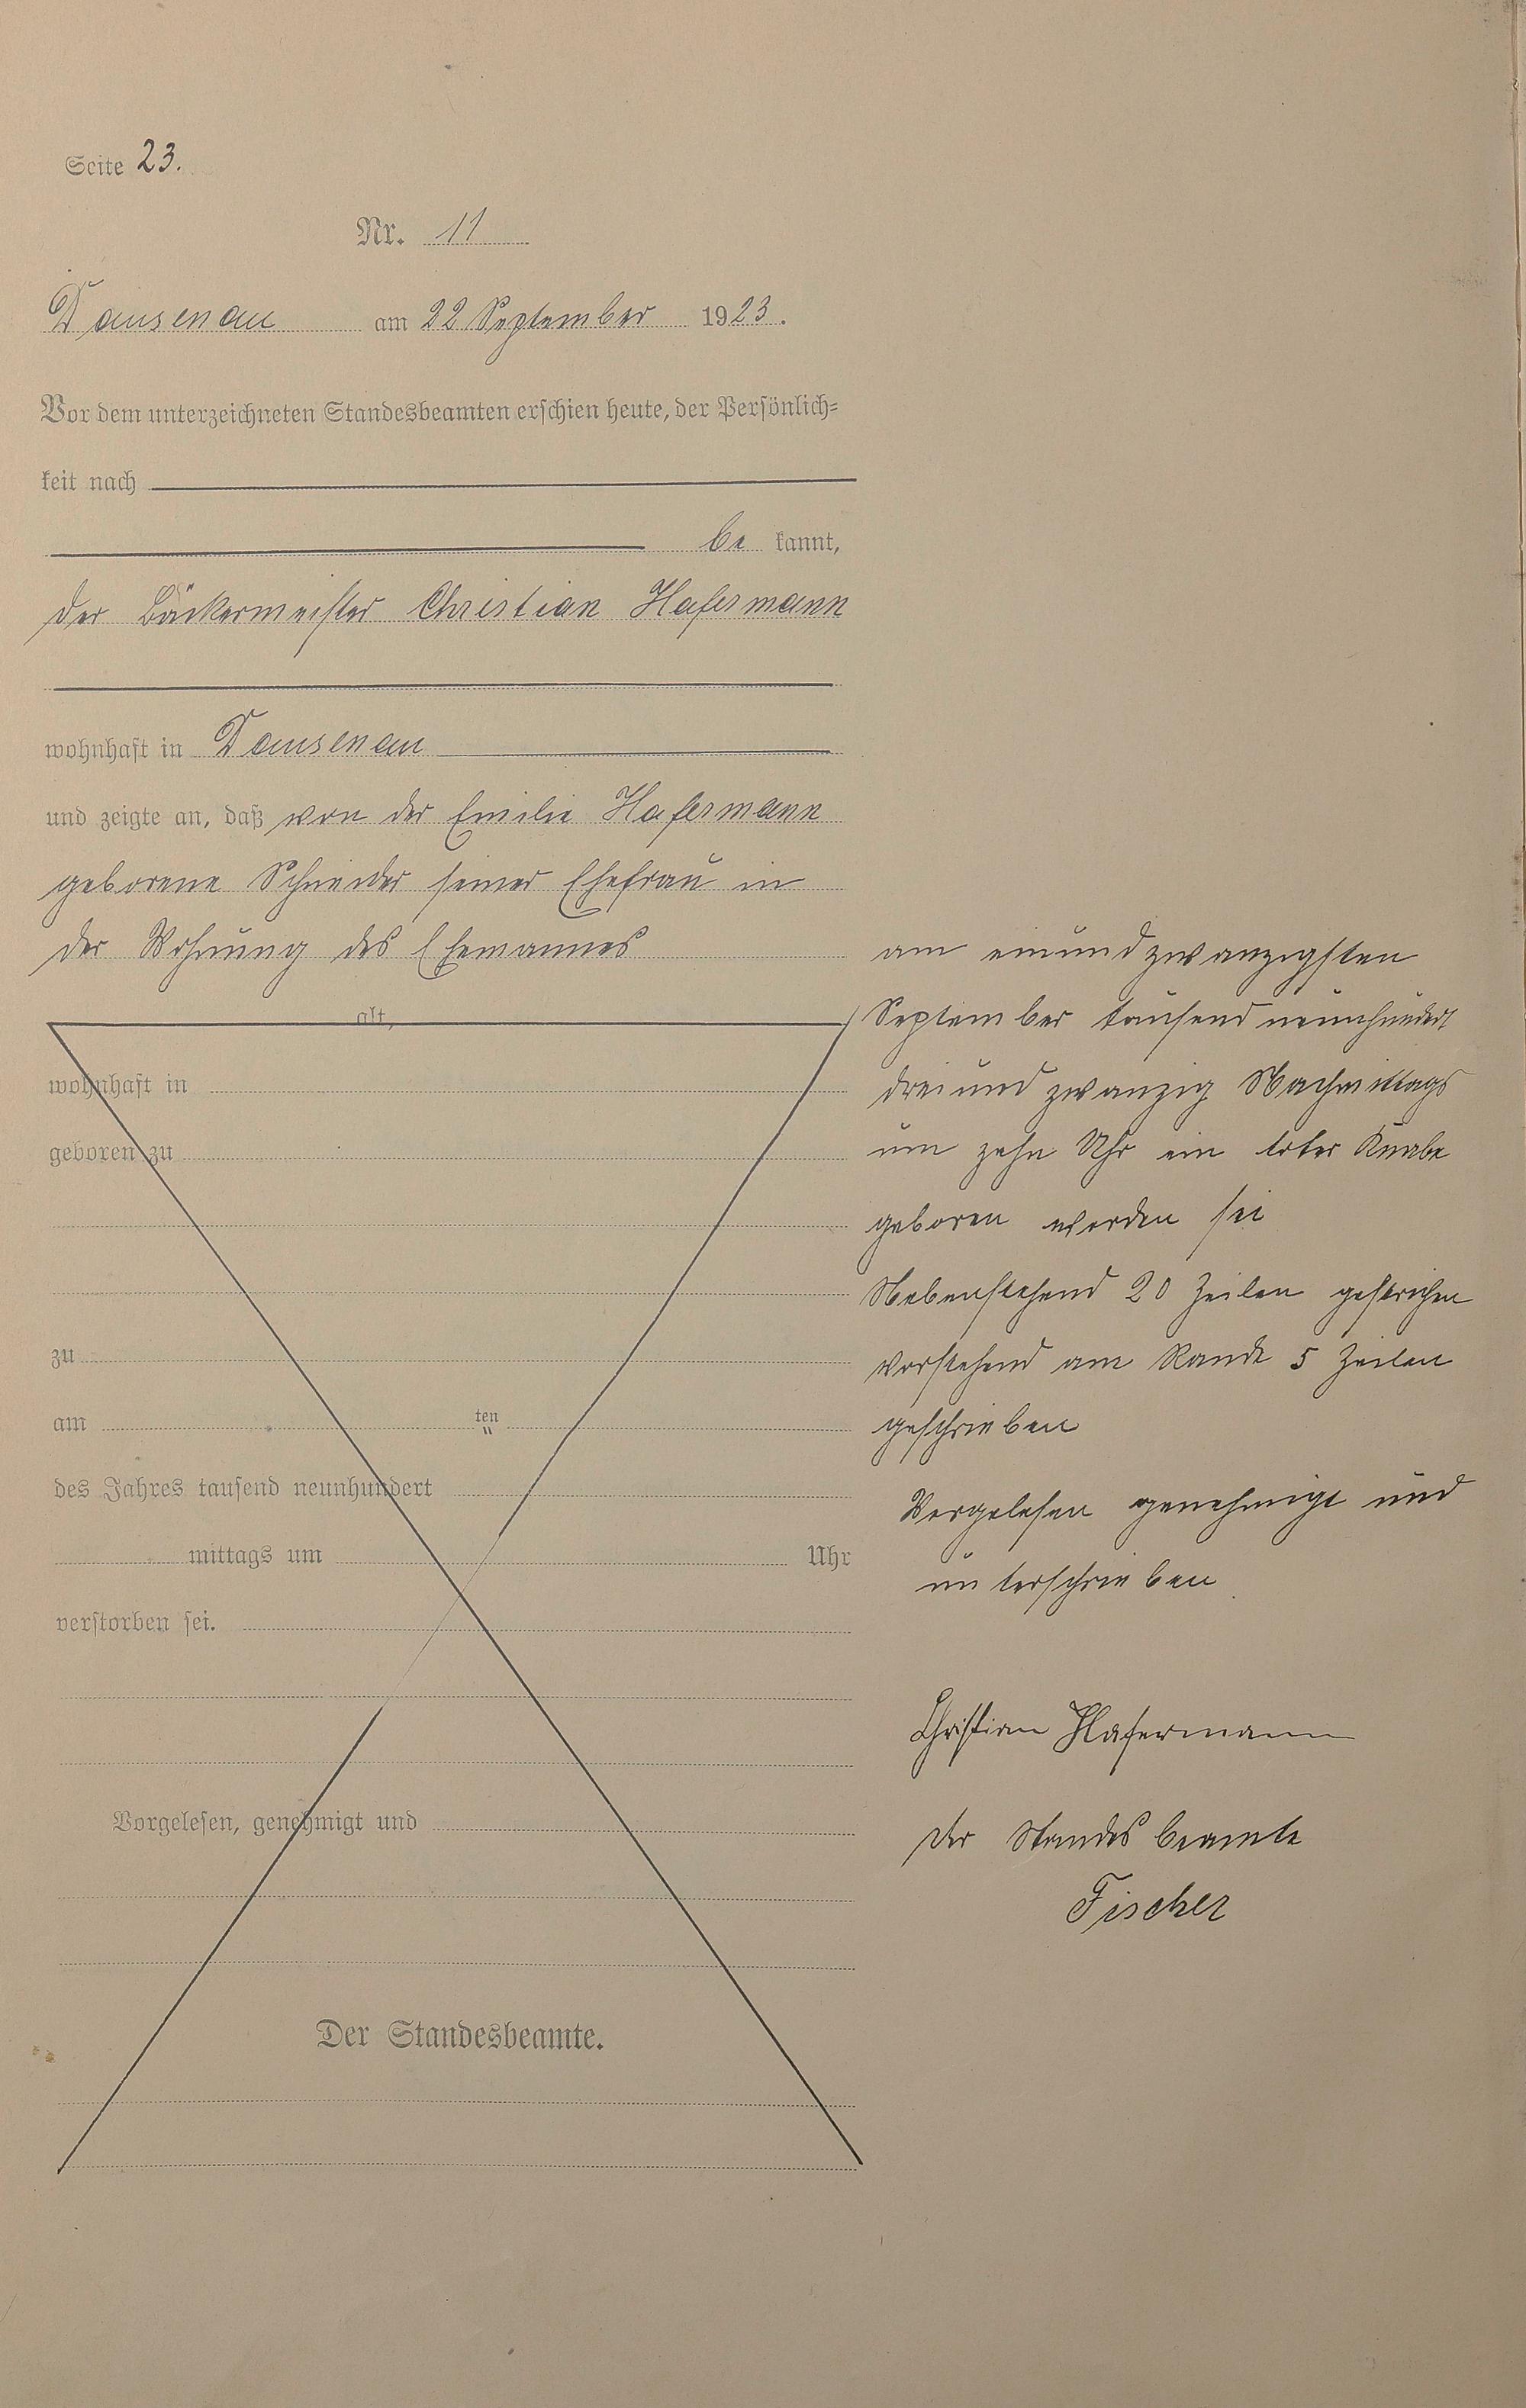 Seite 23.
Nr. 11
Dausenau am 22 September 1923.
Vor dem unterzeichneten Standesbeamten erschien heute, der Persönlich-
keit nach
be kannt,
der Bäckermeister Christian Hafermann
wohnhaft in Dausenau
und zeigte an, daß von der Emilie Hafermann
geborene Schneider seiner Ehefrau in
der Wohnung des Ehemannes
alt,
wohnhaft in
geboren zu
zu
am ten
des Jahres tausend neunhundert
mittags um Uhr
verstorben sei.
Vorgelesen, genehmigt und
Der Standesbeamte.
am einundzwanzigsten
September tausend neunhundert
dreiund zwanzig Nachmittags
um zehn Uhr ein toter Knabe
geboren worden sei
Nebenstehend 20 Zeilen gestrichen
vorstehend am Rande 5 Zeilen
geschrieben
Vorgelesen genehmigt und
unterschrieben
Christian Hafermann
der Standesbeamte
Fischer